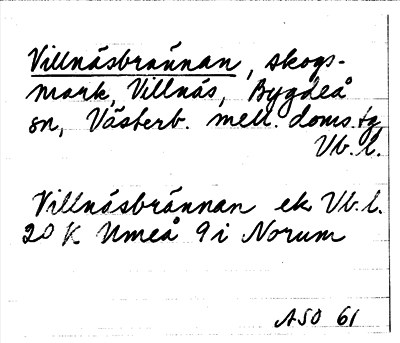 Villnäsbrännan, skogs-
mark, Villnäs, Bygdeå
sn, Västerb. mell. doms.tg
Vb.l.
Villnäsbrännan ek Vb.l.
20 K Umeå 9 i Norum
ASO 61